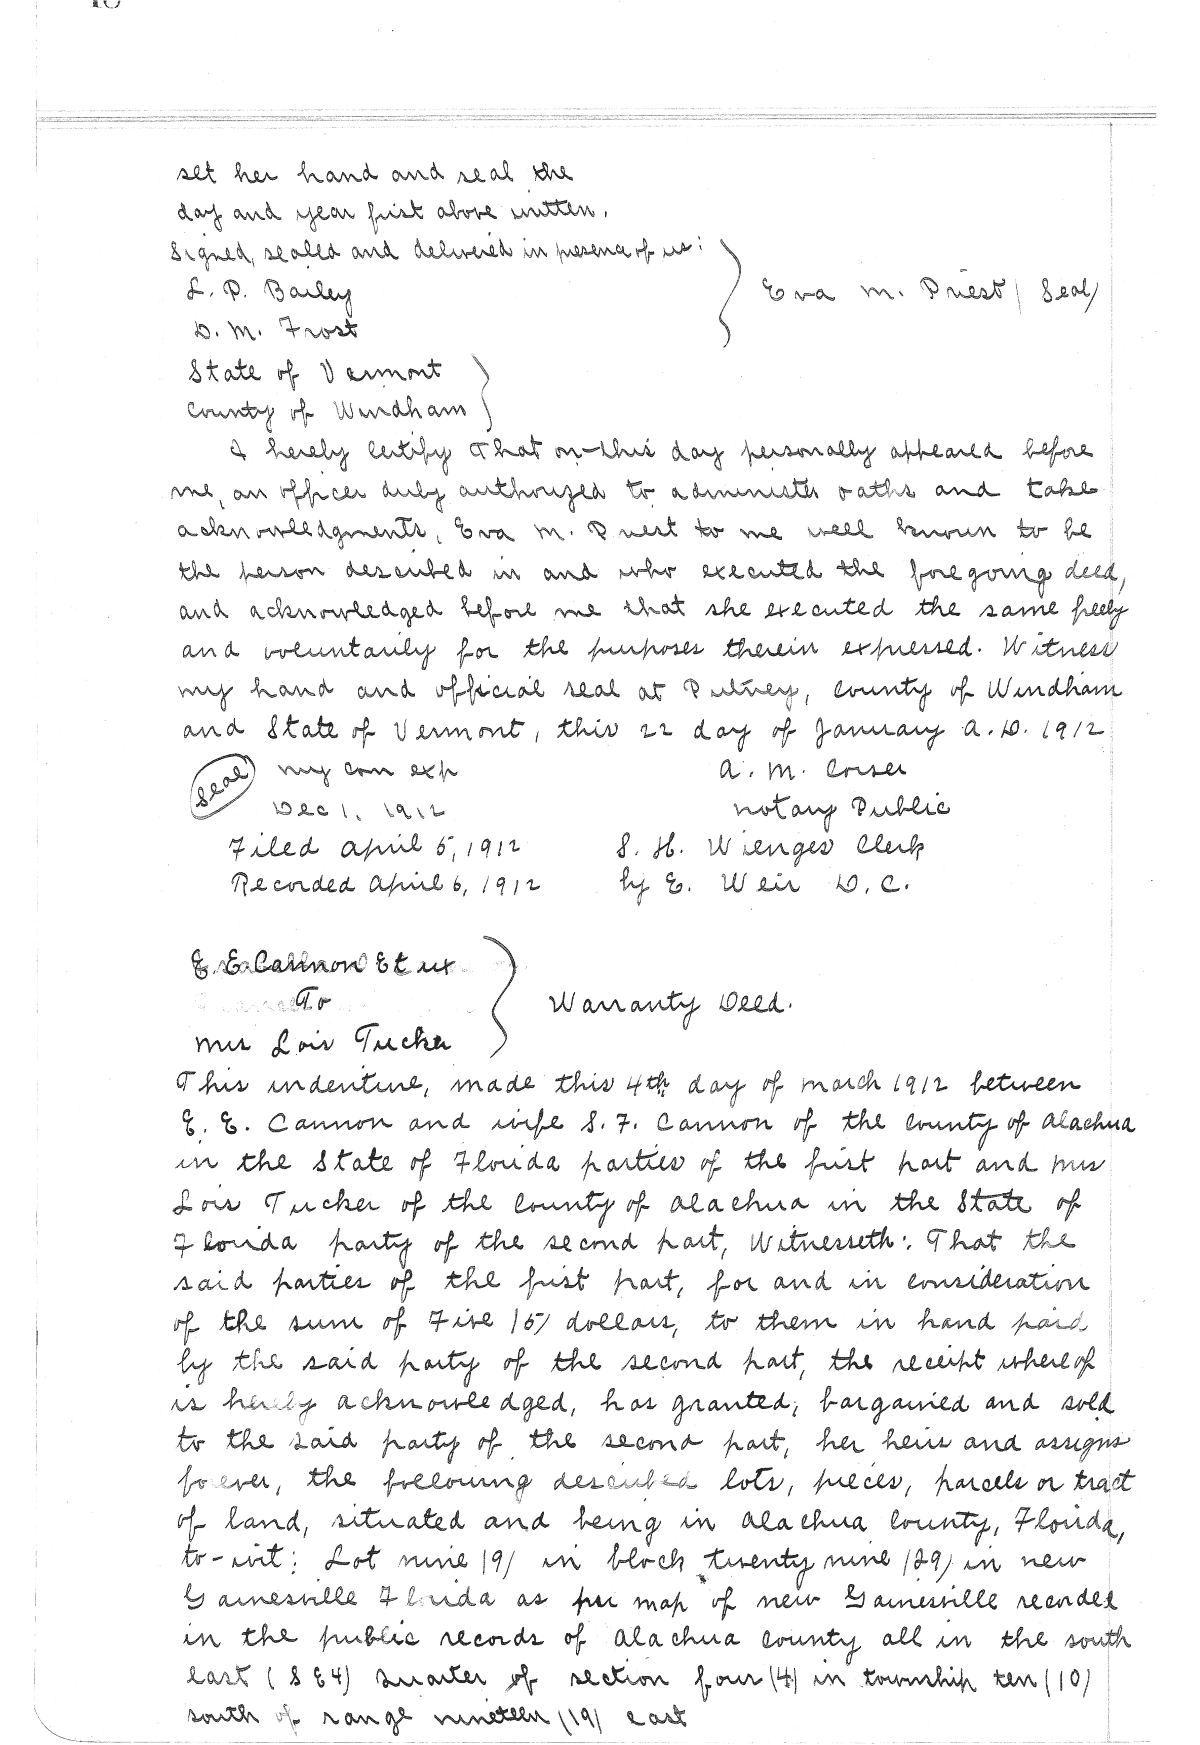 set her hand and seal the
day and year first above written.
Signed, sealed and delivered in presence of us:
L. P. Bailey
Eva M. Priest (Seal)
D. M. Frost
State of Vermont
County of Windham
I hereby certify That on this day personally appeared before
me, an officer duly authorized to administer oaths and take
acknowledgments, Eva M. Priest to me well known to be
the person described in and who executed the foregoing deed,
and acknowledged before me that she executed the same freely
and voluntarily for the purposes therein expressed. Witness
my hand and official seal at Putney, County of Windham
and State of Vermont, this 22 day of January A.D. 1912
Seal my com exp A. M. Corser
Dec 1, 1912 notary Public
Filed April 5, 1912 S. H. Wienges Clerk
Recorded April 6, 1912 by E. Weir D.C.
E. E. Cannon Et ux
To Warranty Deed.
Mrs Lois Tucker
This indenture, made this 4th day of March 1912 between
E. E. Cannon and wife S. F. Cannon of the County of Alachua
in the State of Florida parties of the first part and Mrs
Lois Tucker of the County of Alachua in the State of
Florida party of the second part, Witnesseth: That the
said parties of the first part, for and in consideration
of the sum of Five (5) dollars, to them in hand paid
by the said party of the second part, the receipt whereof
is hereby acknowledged, has granted, bargained and sold
to the said party of the second part, her heirs and assigns
forever, the following described lots, pieces, parcels or tract
of land, situated and being in Alachua County, Florida,
to-wit: Lot nine (9) in block twenty nine (29) in new
Gainesville Florida as per map of new Gainesville recorded
in the public records of Alachua County all in the south
east (S E 4) quarter of section four (4) in township ten (10)
south of range nineteen (19) east